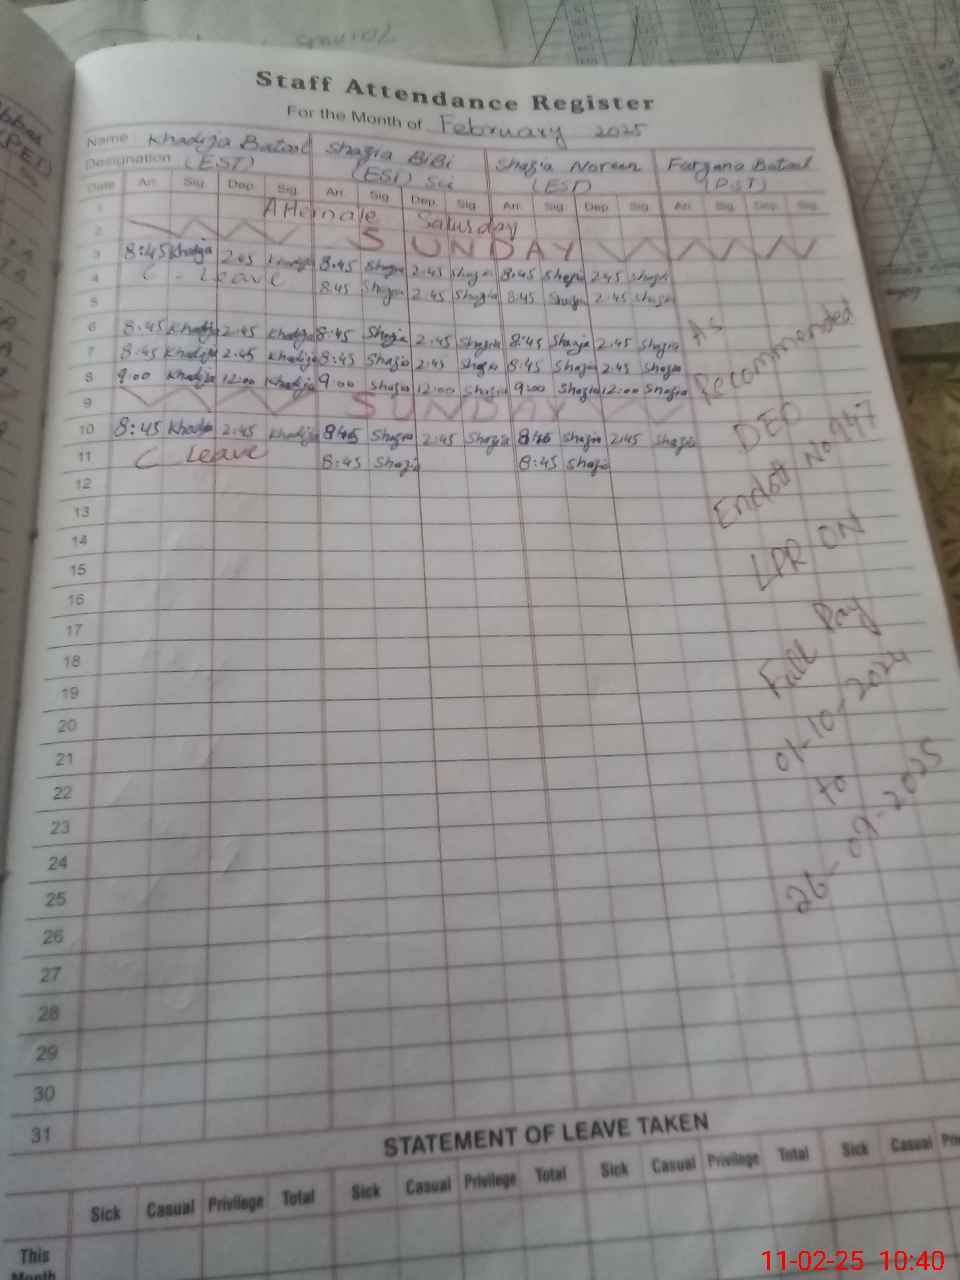 Staff Attendance Register
For the Month of February 2025
Name Khadija Batool Shazia BiBi Shazia Noreen Farzana Batool
Designation (EST) (EST) Sci (EST) (PST)
Date Arr. Sig. Dep. Sig. Arr. Sig. Dep. Sig. Arr. Sig. Dep. Sig. Arr. Sig. Dep. Sig.
1 Saturday
2 SUNDAY
3 8:45 Khadija 2:45 Khadija 8:45 Shazia 2:45 Shazia 8:45 Shazia 2:45 Shazia
4 C - Leave 8:45 Shazia 2:45 Shazia 8:45 Shazia 2:45 Shazia
5
6 8:45 Khadija 2:45 Khadija 8:45 Shazia 2:45 Shazia 8:45 Shazia 2:45 Shazia
7 8:45 Khadija 2:45 Khadija 8:45 Shazia 2:45 Shazia 8:45 Shazia 2:45 Shazia
8 9:00 Khadija 12:00 Khadija 9:00 Shazia 12:00 Shazia 9:00 Shazia 12:00 Shazia
9 SUNDAY
10 8:45 Khadija 2:45 Khadija 8:45 Shazia 2:45 Shazia 8:45 Shazia 2:45 Shazia
11 C Leave 8:45 Shazia 8:45 Shazia
12
13
14
15
16
17
18
19
20
21
22
23
24
25
26
27
28
29
30
31
As
Recommended
DEO
Endstt No 947
LPR ON
Full Pay
01-10-2024
to
STATEMENT OF LEAVE TAKEN
Sick Casual Privilege Total Sick Casual Privilege Total Sick Casual Privilege Total Sick Casual
This
Month
11-02-25 10:40